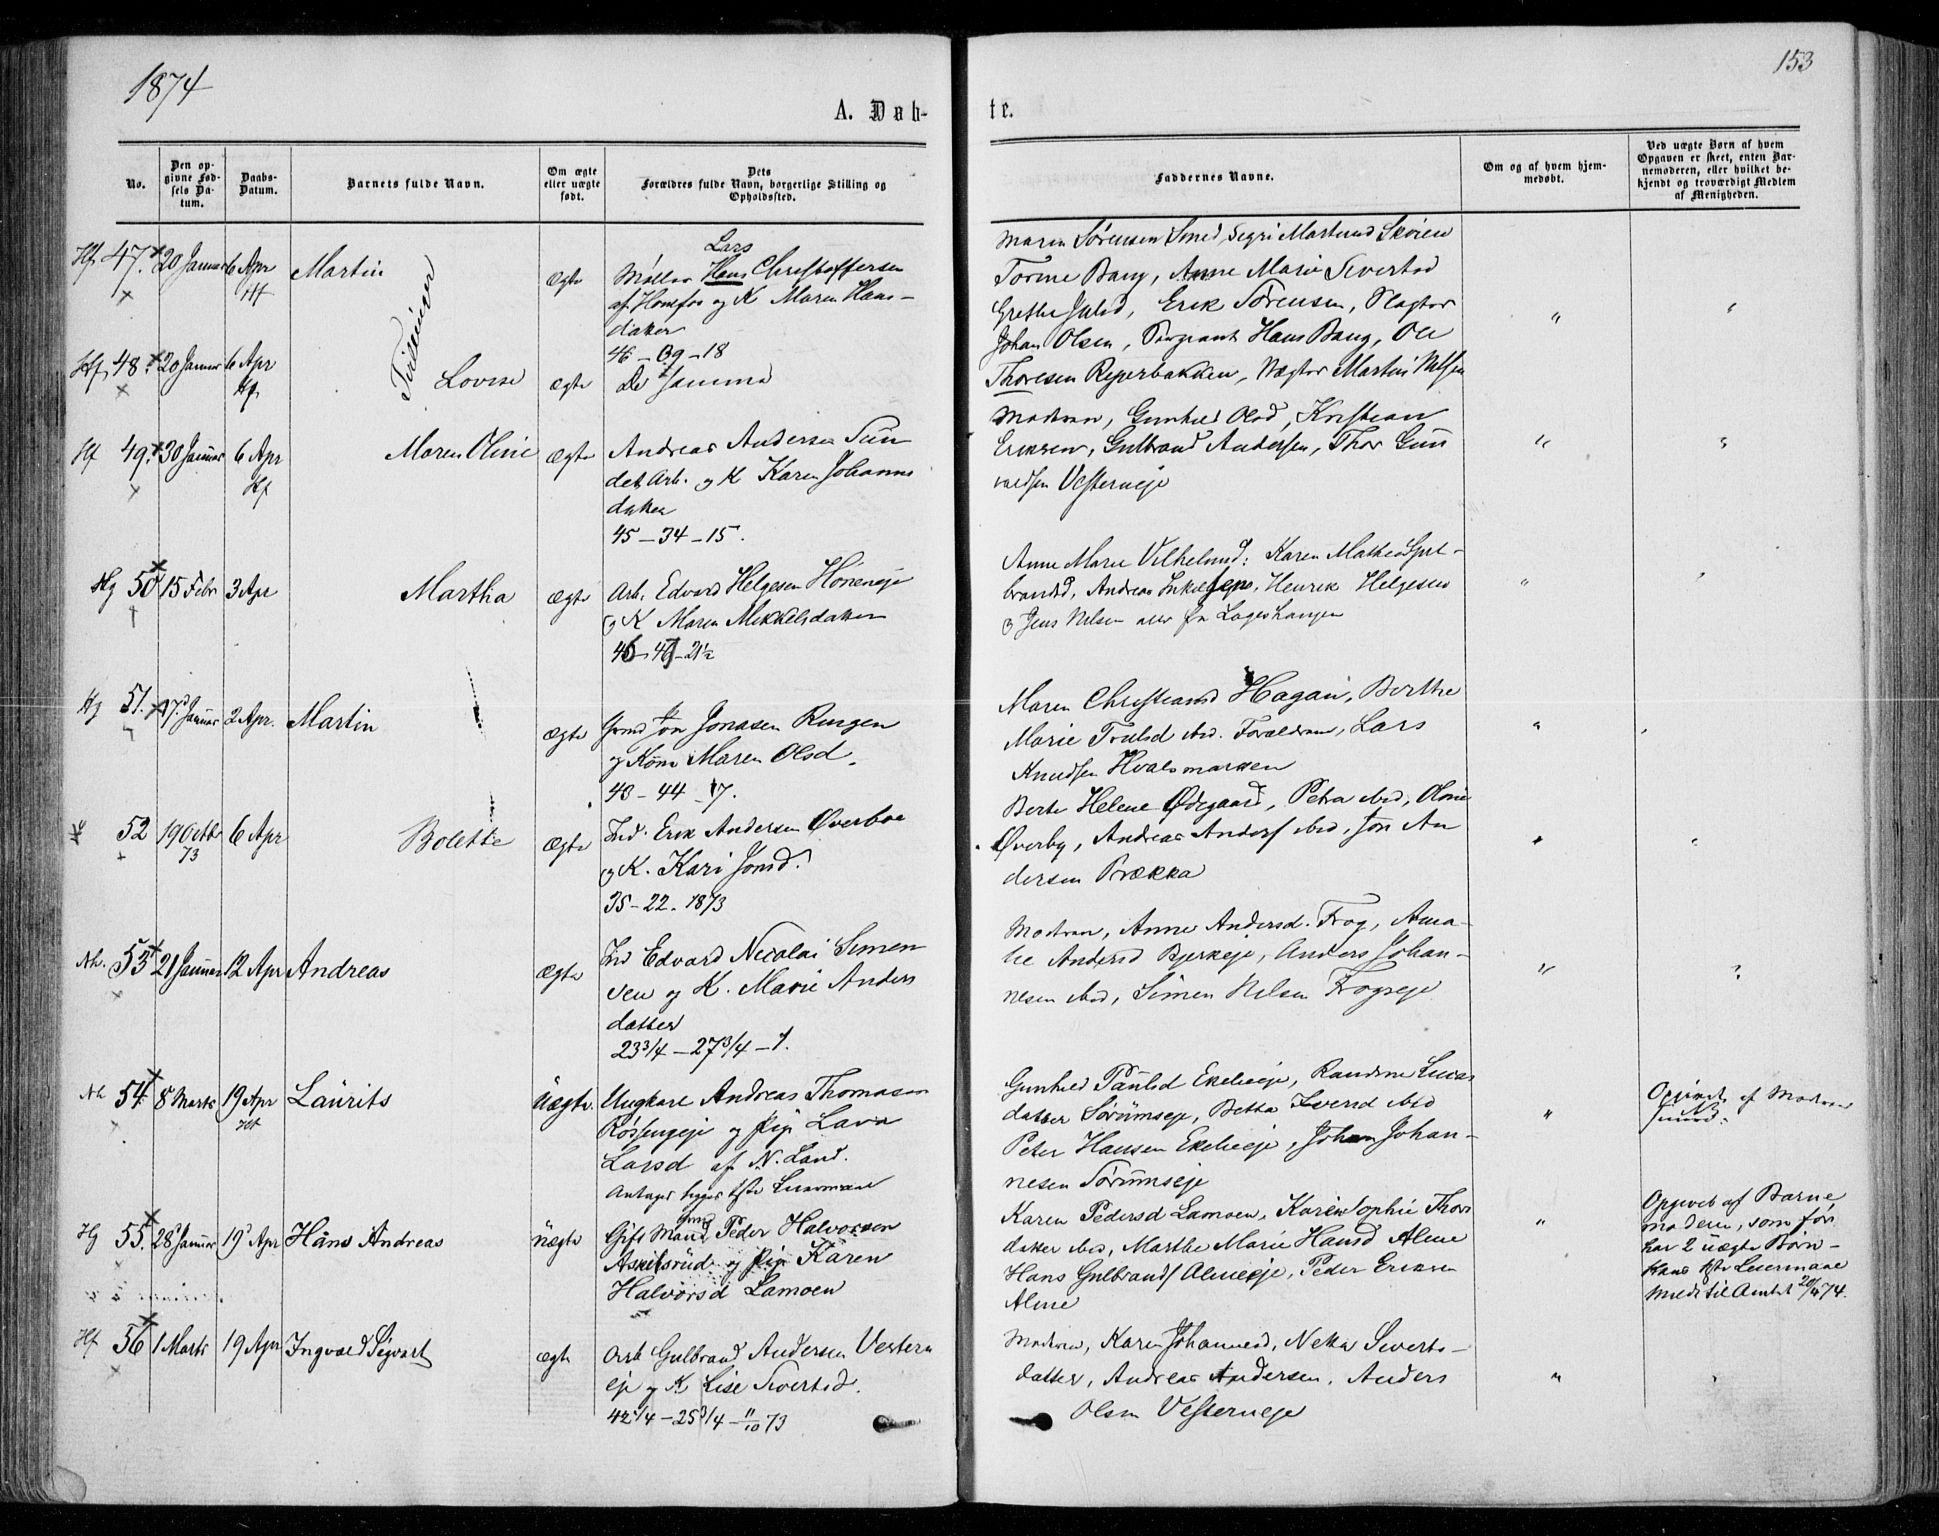 1874
153
A. Døb-
te.
No.
Den op-
givne Fød-
sels Da-
tum.
Daabs-
Datum.
Barnets fulde Navn.
Om ægte
eller uægte
født.
Dets
Forældres fulde Navn, borgerlige Stilling og
Opholdssted.
Faddernes Navne.
Om og af hvem hjem-
medøbt.
Ved uægte Børn af hvem
Opgaven er skeet, enten Bar-
nemoderen, eller hvilket be-
kjendt og troværdigt Medlem
af Menigheden.
Hf 47. 20 Januar 6 Apr Martin ægte
Hf
Tvillinger
Lars
Møller Hans Christoffersen
af Hønefos og K Maren Hans-
datter
46-09-18
Maren Sørensen Smed, Sigri Martinsd Skøien
Torine Bang, Anne Marie Sivertsd
Grethe Julsd, Erik Sørensen, Slagter
Johan Olsen, Sergeant Hans Bang, Ole
Thoresen Reperbakken, Vægter Martin Nilsen
Hf 48. 20 Januar 6 Apr Lovise ægte De Samme
Hf
Hf 49. 30 Januar 6 Apr Maren Oline ægte
Hf
Andreas Andersen Sun
det Arb. og K Karen Johannes
datter
45-34-15.
Modren, Gunhild Olsd, Kristian
Eriksen, Gulbrand Andersen, Thor Gun
valdsen Vesterneje
Hg 50 15 Febr 3 Apr Martha ægte
Arb. Edvard Helgesen Høneneje
og K Maren Mikkelsdatter
46-47-21½
Anne Marie Vilhelmsd: Karen Mathea Gul-
brandsd, Andreas, Henrik Helgesen
og Jens Nilsen alle fra Lageshaugen
Hg 51. 17 Januar 2 Apr. Martin ægte
Grmd Jon Jonasen Ringen
og Kone Maren Olsd.
43-44-17.
Maren Christiansd Hagan, Berthe
Marie Trulsd ibid. Forældrene, Lars
Knudsen Hvalsmarken
52 19 Octbr 6 Apr Bolette ægte
73
Ind. Erik Andersen Øverboe
og K. Kari Jonsd.
35-22-1873
Berte Helene Ødegaard, Petra ibid, Oline
Øverby, Andreas Anders ibid, Jon An
dersen Prækka
Nh. 53 21 Januar 12 Apr Andreas ægte
Ind Edvard Nicolai Simen
sen og K. Marie Anders
datter
23¾-27¾-1.
Modren, Anne Andersd. Frog, Ama-
lie Andersd Bjerkeje, Anders Johan-
nesen ibid, Simen Nilsen Frogseje
Nh 54. 8 Marts 19 Apr Laurits Uægte.
Ungkarl Andreas Thomasen
Røssengeje og Pige Lava
Larsd af N. Land.
Antages begges 1ste Leiermaal
Gunhild Paulsd Ekelieeje, Randine Lucas
datter Sørumseje, Betta Iversd ibid
Peter Hansen Ekelieeje, Johan Johan-
nesen Sørumseje
Opgivet af Modren
Hg 55. 28 Januar 19 Apr Hans Andreas Uægte
Gift Mand Peder Halvorsen
Askilsrud og Pige Karen
Halvorsd Lamoen
Karen Pedersd Lamoen, Karen Sophie Thors
datter ibid, Marthe Marie Hansd Alme
Hans Gulbrands Almeeje, Peder Eriksen
Alme
Opgivet af Barne
moderen, som før
har 2 uægte Børn-
Hans 1ste Leiermaal
Meldt til Amtet 20/4 74.
Hf 56 1 Marts 19 Apr Ingvald Sigvart ægte
Arb Gulbrand Andersen Vestern
eje og K Lise Sivertsd.
42¼-25¾-11/10 73
Modren, Karen Johannesd, Netta Siverts-
datter, Andreas Andersen, Anders
Olsen Vesterneje